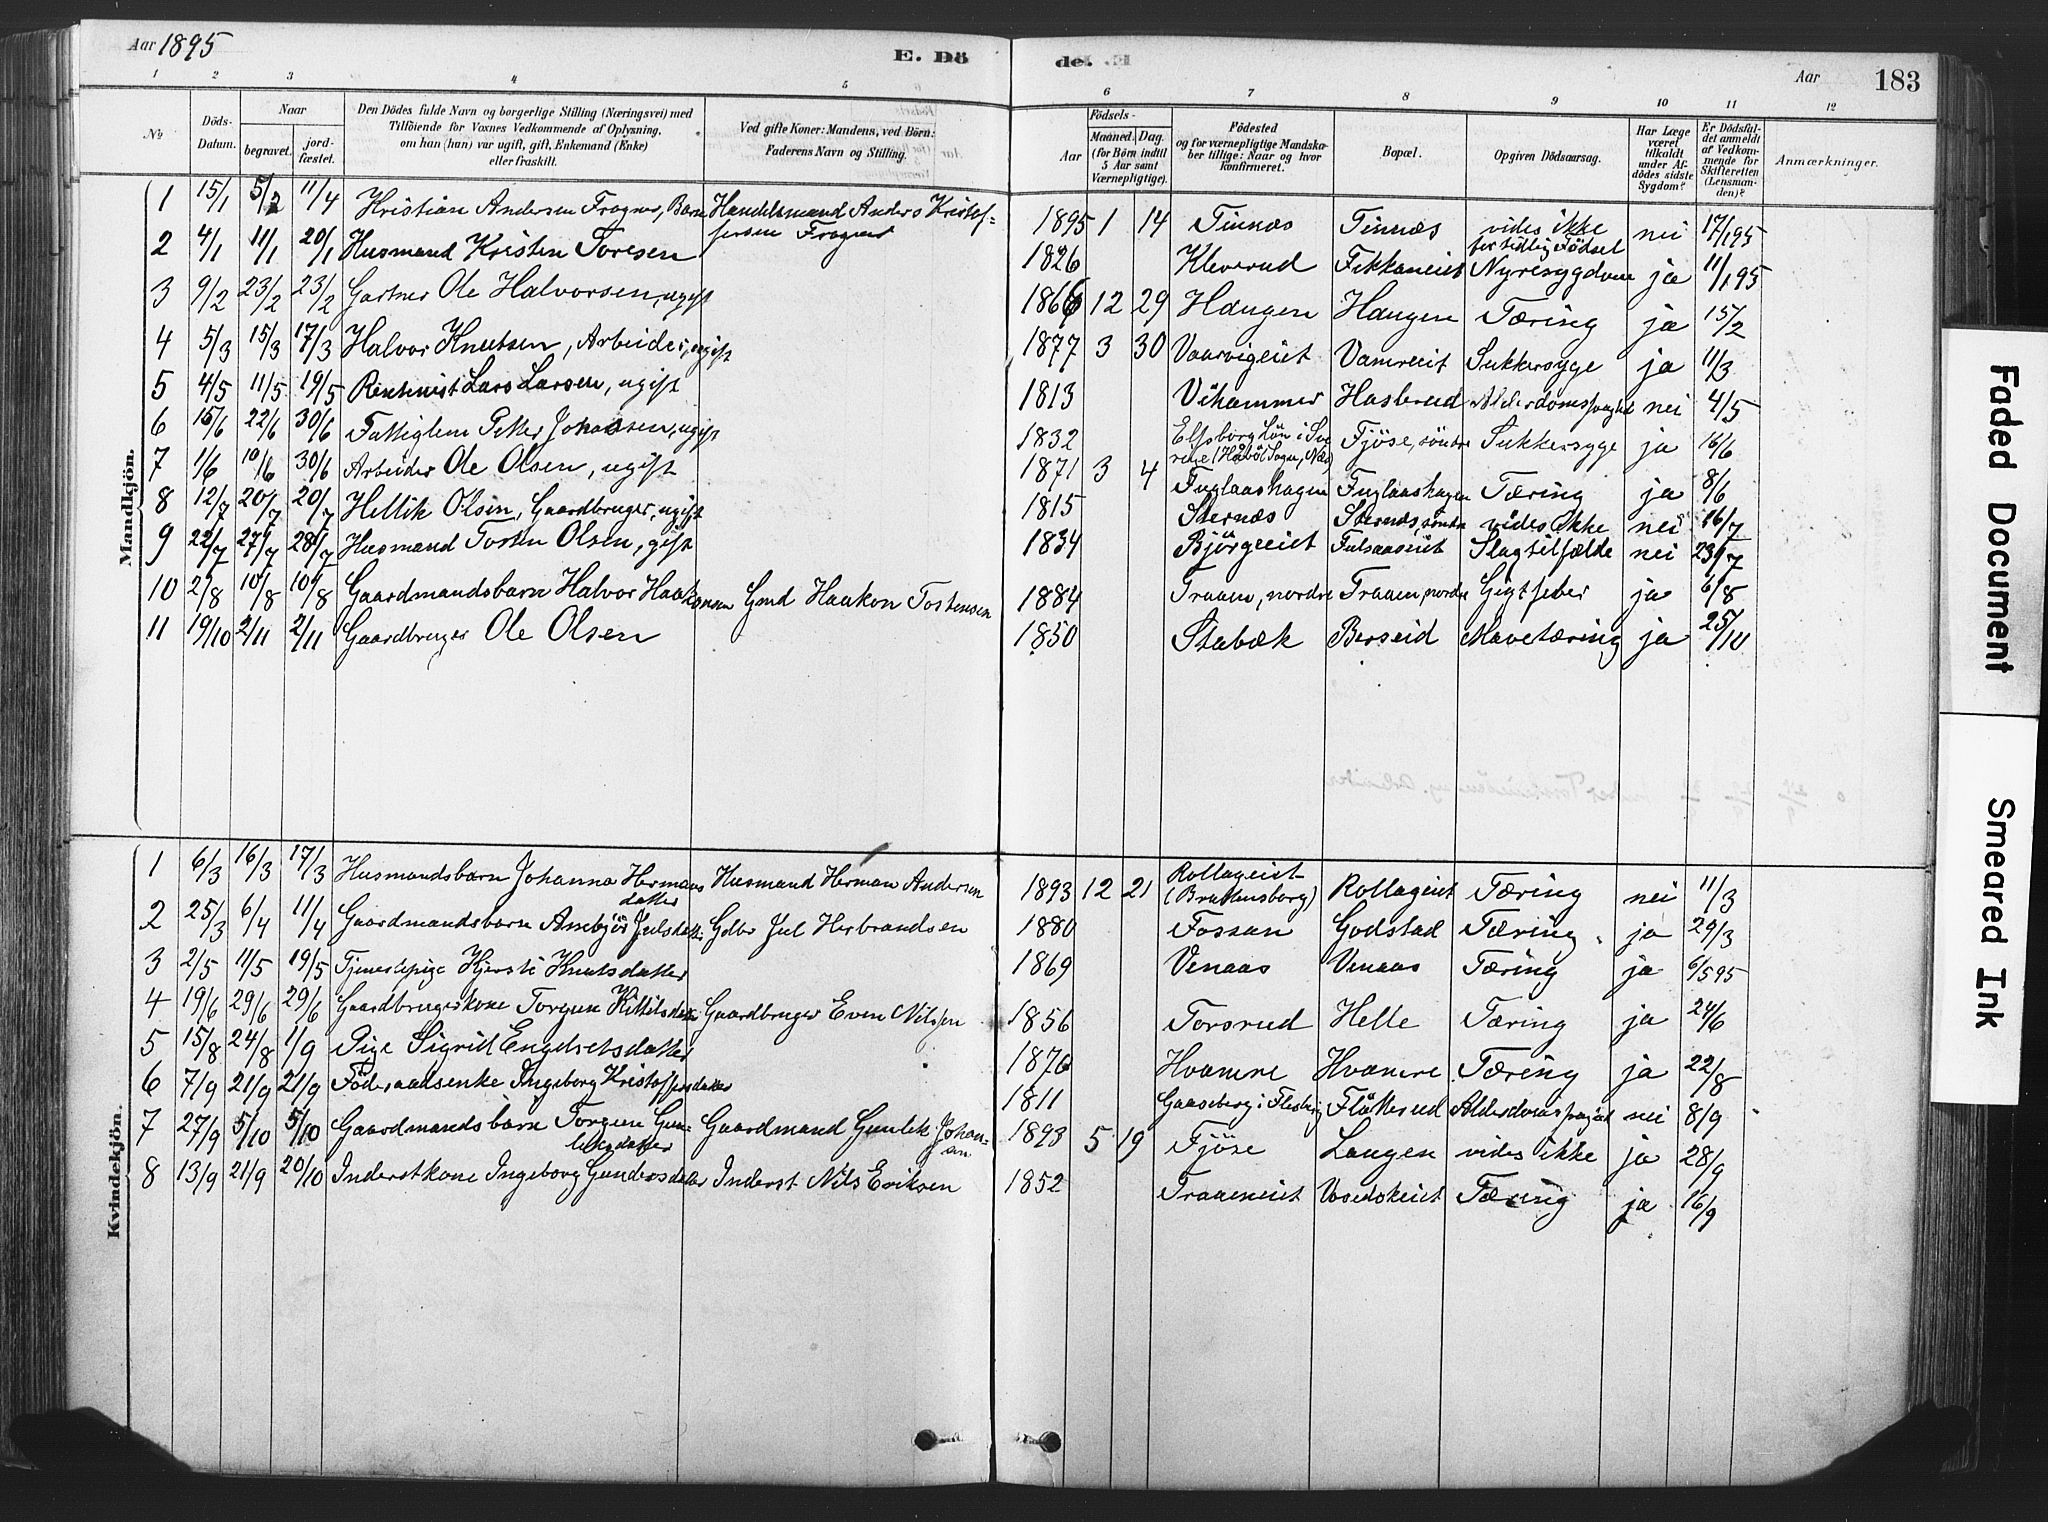 Aar 1895
E. Dö
de.
Aar
183
1 2 3 4 5 6 7 8 9 10 11 12
No
Döds-Datum.
Naar
begravet.
jord-fæstet.
Den Dödes fulde Navn og borgerlige Stilling (Næringsvei) med
Tilföiende for Voxnes Vedkommende af Oplysning,
om han (hun) var ugift, gift, Enkemand (Enke)
eller fraskilt.
Ved gifte Koner: Mandens, ved Börn:
Faderens Navn og Stilling.
Födsels-
Aar
Maaned. Dag.
(for Börn indtil
5 Aar samt
Værnepligtige).
Födested
og for værnepligtige Mandska-
ber tillige: Naar og hvor
konfirmeret.
Bopæl.
Opgiven Dödsaarsag.
Har Læge
været
tilkaldt
under Af-
dödes sidste
Sygdom?
Er Dödsful-
det anmeldt
af Vedkom-
mende for
Skifteretten
(Lensman-
den)?
Anmærkninger.
Mandkjön.
1 15/1 5/2 11/4 Kristian Andersen Fragner, Barn Handelsmand Anders Kristof-
fersen Fragner 1895 1 14 Tinnæs Tinnæs vides ikke
for tidlig Födsel nei 17/1 95
2 4/1 11/1 20/1 Husmand Kristen Toresen 1826 Kleverud Fekkaneiet Nyresygdom ja 11/1 95
3 9/2 23/2 23/2 Gartner Ole Halvorsen, ugift 1866 12 29 Haugen Haugen Tæring ja 15/2
4 5/3 15/3 17/3 Halvor Knutsen, Arbeider, ugift 1877 3 30 Vaarvigeiet Vamreiet Sukkersyge ja 11/3
5 4/5 11/5 19/5 Rentenist Lars Larsen, ugift 1813 Vihammer Hasterud Alderdomssvaghed nei 4/5
6 15/6 22/6 30/6 Fattiglem Petter Johansen, ugift 1832 Elfsborg Län i Sve
rige (Håböl Sogn, Næs) Fjöse, söndre Sukkersyge ja 16/6
7 1/6 10/6 30/6 Arbeider Ole Olsen, ugift 1871 3 4 Fuglaashagen Fuglaashagen Tæring ja 8/6
8 12/7 20/7 20/7 Hellik Olsen, Gaardbruger, ugift 1815 Sternæs Sternæs, söndre vides ikke nei 16/7
9 22/7 27/7 28/7 Husmand Tosten Olsen, gift 1834 Björgeeiet Fulsaaseiet Slagtilfælde nei 23/7
10 2/8 10/8 10/8 Gaardmandsbarn Halvor Haakonsen Gmd Haakon Tostensen 1884 Traaen, nordre Traaen, nordre Gigtfeber ja 6/8
11 19/10 2/11 2/11 Gaardbruger Ole Olsen 1850 Stabæk Berseid Mavetæring ja 25/10
Kvindekjön.
1 6/3 16/3 17/3 Husmandsbarn Johanna Hermans
datter Husmand Herman Andersen 1893 12 21 Rollageiet
(Brattensborg) Rollageiet Tæring nei 11/3
2 25/3 6/4 11/4 Gaardmandsbarn Anebjör Julsdatter Gdbr Jul Herbrandsen 1880 Fossan Godstad Tæring ja 29/3
3 2/5 11/5 19/5 Tjenestepige Kjersti Knutsdatter 1869 Venaas Venaas Tæring ja 6/5 95
4 19/6 29/6 29/6 Gaardbrugerkone Torgun Kittilsdatter Gaardbruger Even Nilsen 1856 Torsrud Helle Tæring ja 24/6
5 15/8 24/8 1/9 Pige Sigrid Engebretsdatter 1876 Hvamre Hvamre Tæring ja 22/8
6 7/9 21/9 21/9 Föderaadsenke Ingeborg Kristoffersdatter 1811 Gaaseberg i Flesberg Flåtterud Alderdomssvaghed nei 8/9
7 27/9 5/10 5/10 Gaardmandsbarn Torgun Gun-
leiksdatter Gaardmand Gunlek Johan-
sen 1893 5 19 Fjöse Langen vides ikke ja 28/9
8 13/9 21/9 20/10 Inderstkone Ingeborg Gundersdatter Inderst Nils Eriksen 1852 Traaeneiet Tæring ja 16/9
Faded Document
Smeared Ink